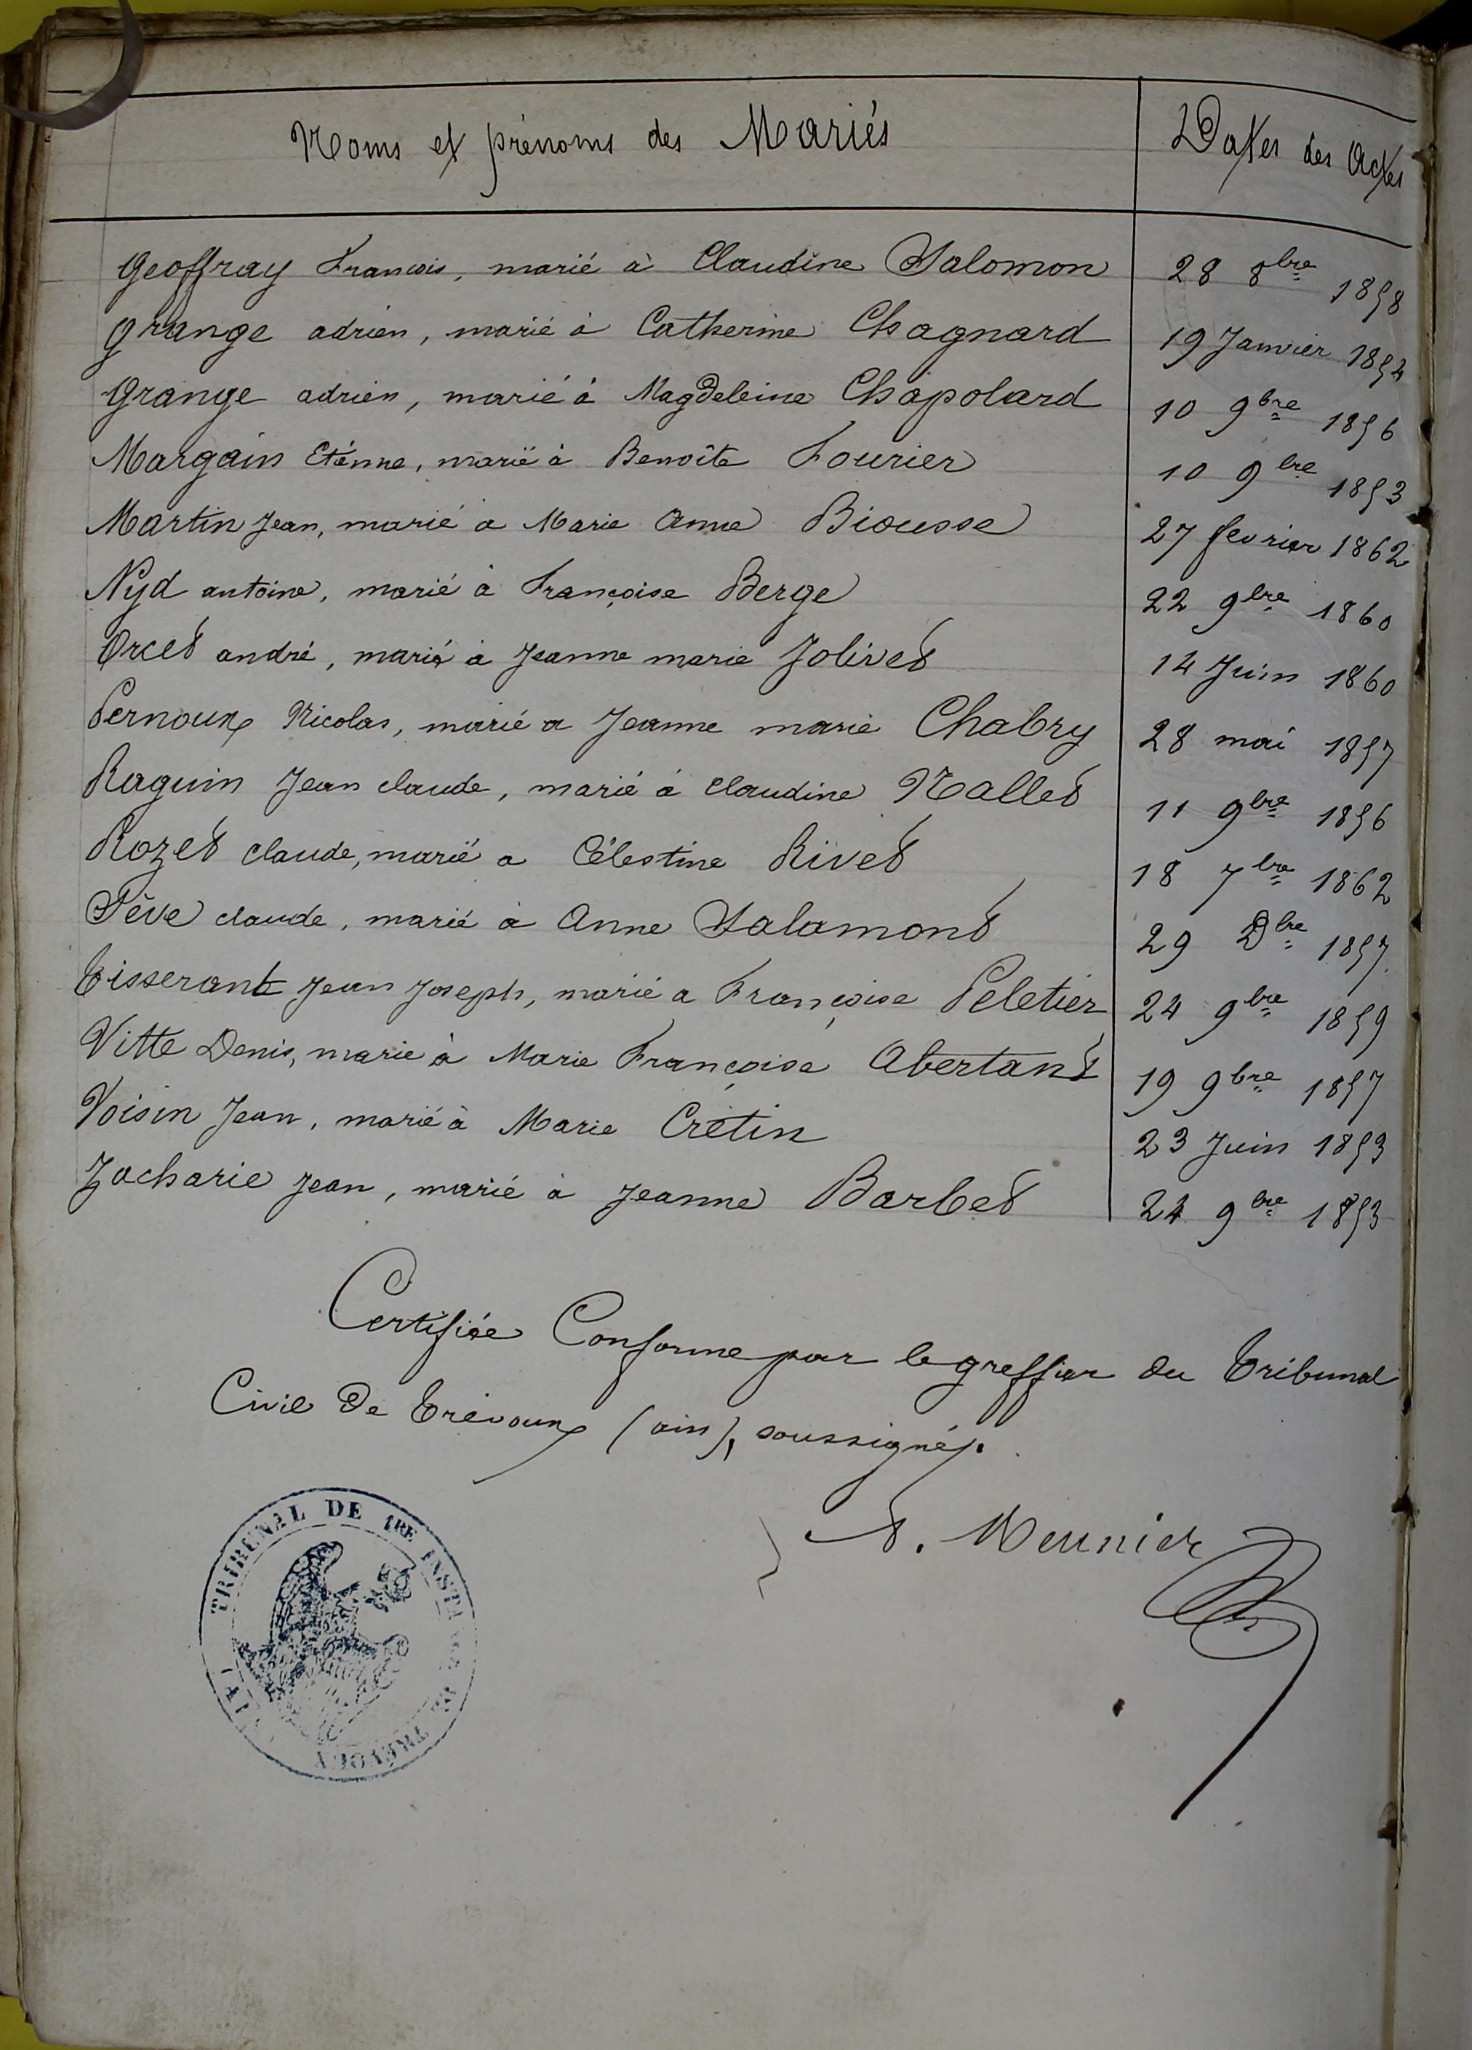 Noms et prénoms des Mariés Dates des Actes
Geoffray Francois, marié à Claudine Salomon 28 8bre 1858
Grange adrien, marié à Catherine Chagnard 19 Janvier 1854
Grange adrien, marié à Magdeleine Chapolard 10 9bre 1856
Margain Etienne, marié à Benoîte Fourier 10 9bre 1853
Martin Jean, marié a Marie Anne Biousse 27 fevrier 1862
Nyd antoine, marié à Françoise Berge 22 9bre 1860
Orcet andré, marié à Jeanne marie Jolivet 14 Juin 1860
Pernoux Nicolas, marié a Jeanne marie Chabry 28 mai 1857
Raguin Jean claude, marié à claudine Nallet 11 9bre 1856
Rozet claude, marié a Célestine Rivet 18 7bre 1862
Sève claude, marié à Anne Salamont 29 Dbre 1857
Tisserant Jean Joseph, marié a Françoise Peletier 24 9bre 1859
Vitte Denis, marie à Marie Françoise Abertant 19 9bre 1857
Voisin Jean, marié à Marie Crétin 23 Juin 1853
Zacharie Jean, marié à Jeanne Barbet 24 9bre 1853
Certifiée Conforme par le greffier du Tribunal
Civil De Trévoux (ain), soussigné.
Meunier
TRIBUNAL DE 1RE INST
DE TRÉVOUX